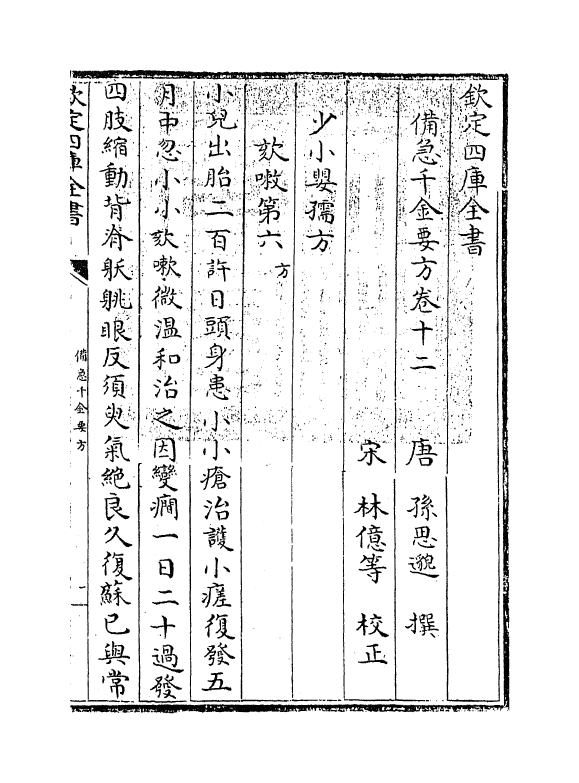 欽定四庫全書
備急千金要方卷十二
唐 孫思邈 撰
宋 林億等 校正
少小嬰孺方
欬嗽第六 方
小兒出胎二百許日頭身患小小瘡治護小瘥復發五
月中忽小小欬嗽微温和治之因變癇一日二十過發
四肢縮動背脊䠷眼反須臾氣絶良久復蘇已與常
欽定四庫全書
備急千金要方